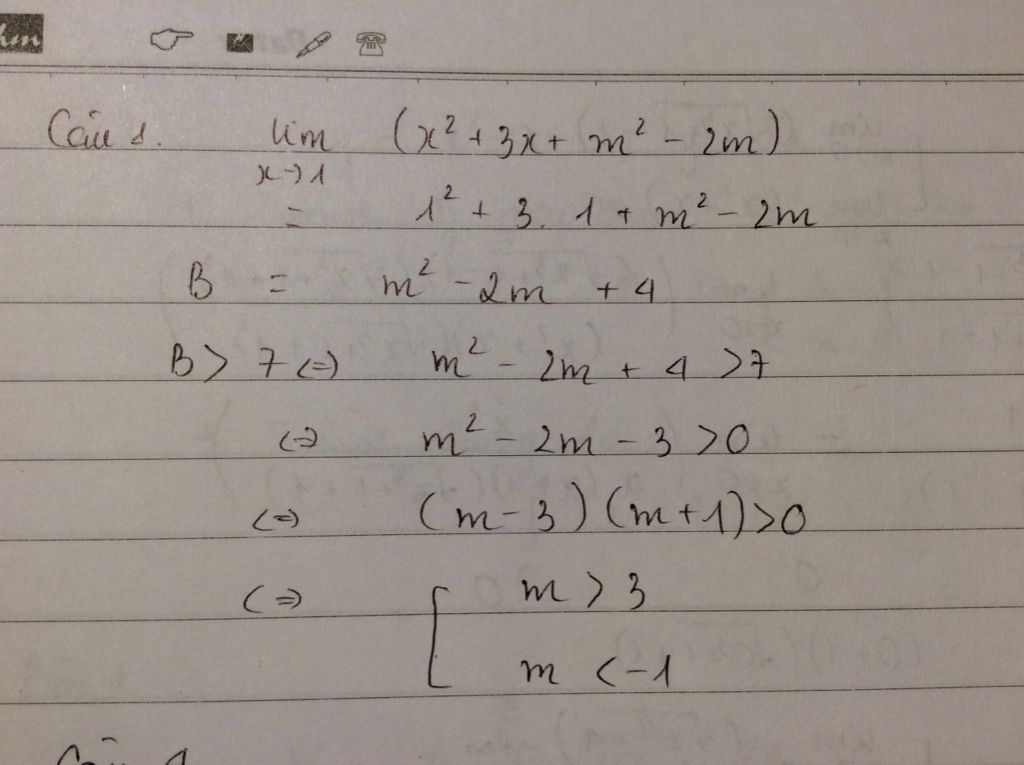 Câu 1. lim (x² + 3x + m² - 2m)
x→1
= 1² + 3.1 + m² - 2m
B = m² - 2m + 4
B > 7 <=> m² - 2m + 4 > 7
<=> m² - 2m - 3 > 0
<=> (m - 3)(m + 1) > 0
<=> [ m > 3
m < -1